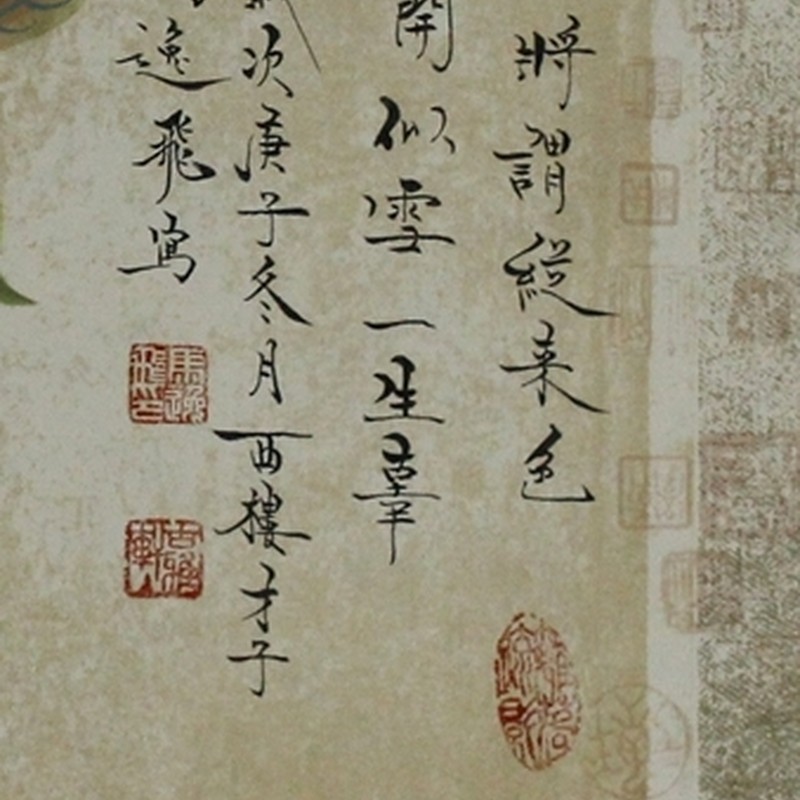 將謂縱来色
開似雪一生辜
次庚子冬月西樓才子
逸飛寫